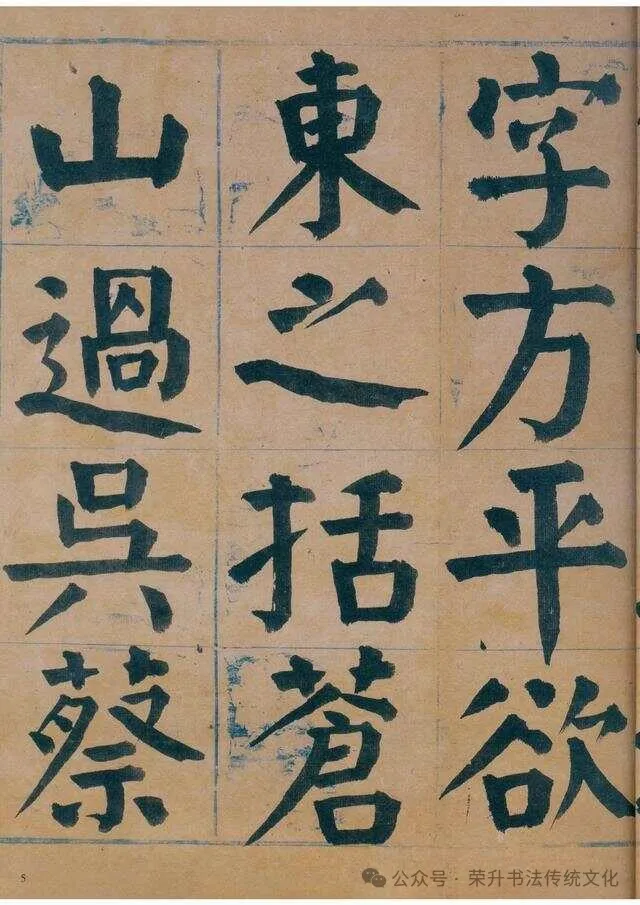 字方平欲
東之括蒼
山過吳蔡
5
公众号·荣升书法传统文化